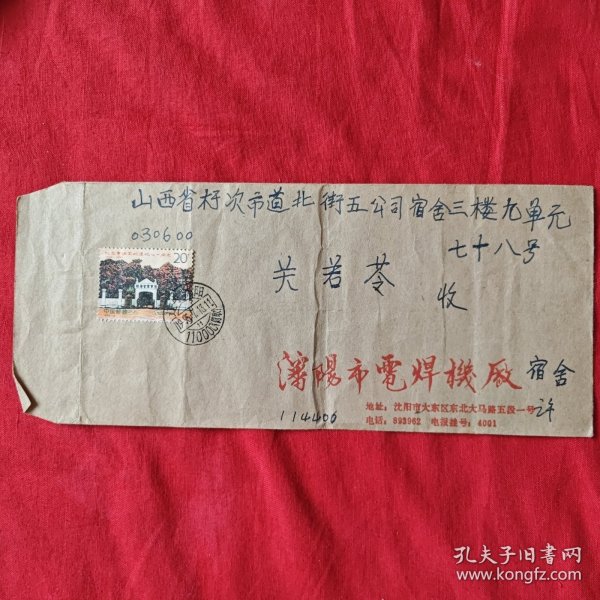 山西省籽次市道北街五公司宿舍三楼九单元
七十八号
030600
关若苓
收
20
中国邮政
110003
瀋陽市電焊機廠
宿舍
许
地址：沈阳市大东区东北大马路五段一号
电话：893962 电报挂号：4001
114400
孔夫子旧书网
www.kongfz.com